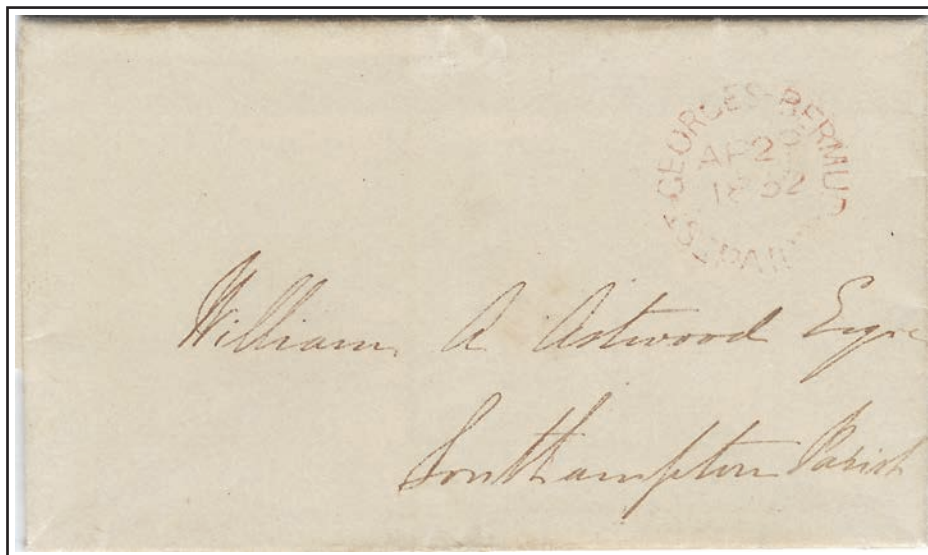 GEORGES BERMUD
AP 29
1862
PAID
William A Astwood Esqre
Southampton Parish